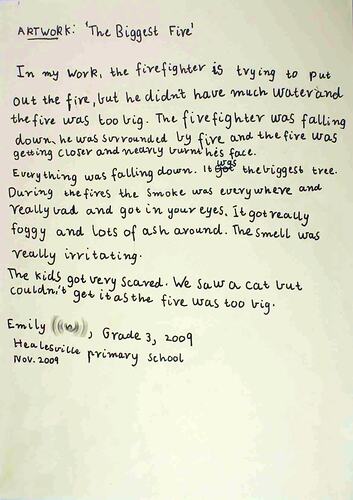 ARTWORK: 'The Biggest Fire'
In my work, the firefighter is trying to put
out the fire, but he didn't have much water and
the fire was too big. The firefighter was falling
down, he was surrounded by fire and the fire was
getting closer and nearly burnt his face.
Everything was falling down. It was the biggest tree.
During the fires the smoke was everywhere and
really bad and got in your eyes. It got really
foggy and lots of ash around. The smell was
really irritating.
The kids got very scared. We saw a cat but
couldn't get it as the fire was too big.
Emily , Grade 3, 2009
Healesville primary school
Nov. 2009